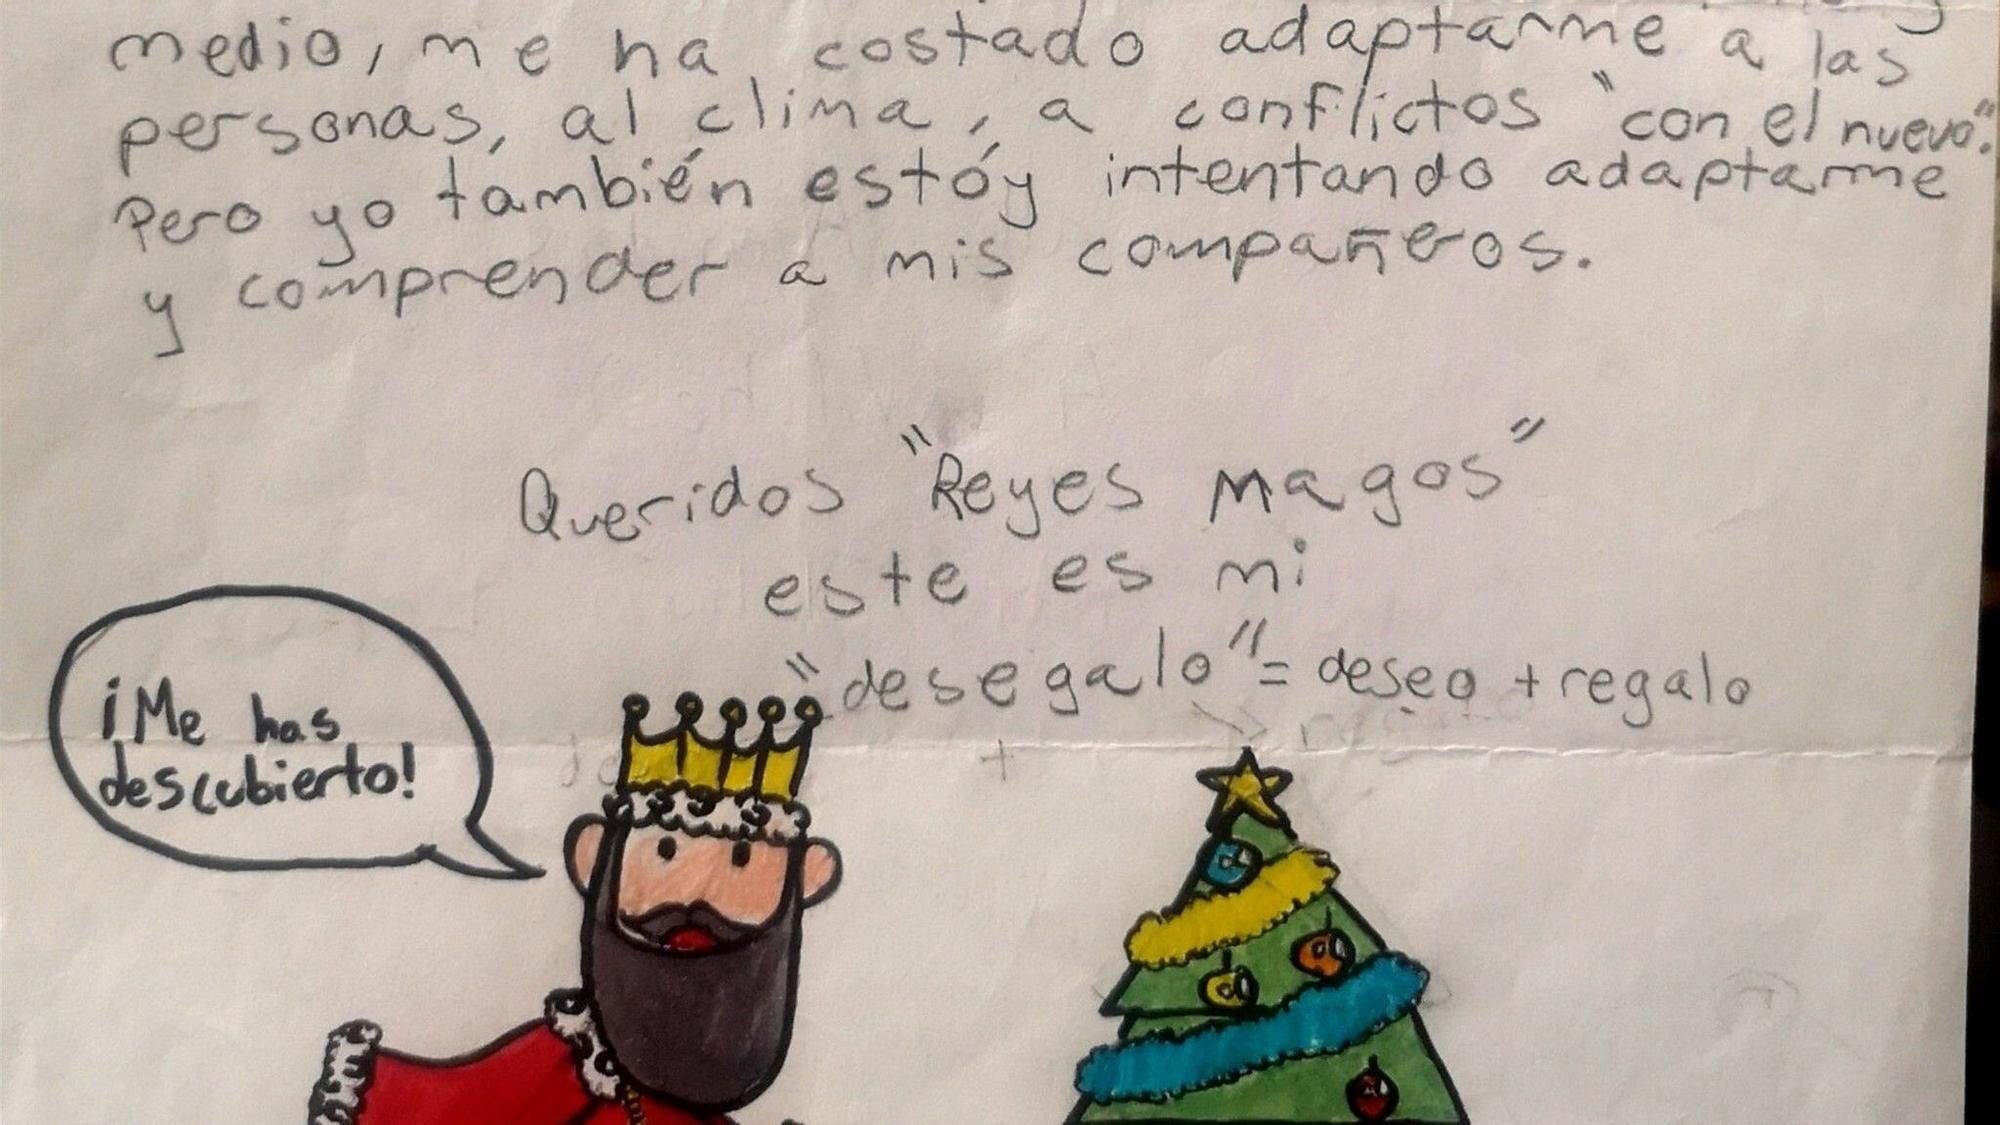 medio, me ha costado adaptarme a las
personas, al clima, a conflictos "con el nuevo".
Pero yo también estóy intentando adaptarme
y comprender a mis compañeros.
Queridos "Reyes Magos"
este es mi
"desegalo" = deseo + regalo
¡Me has
descubierto!